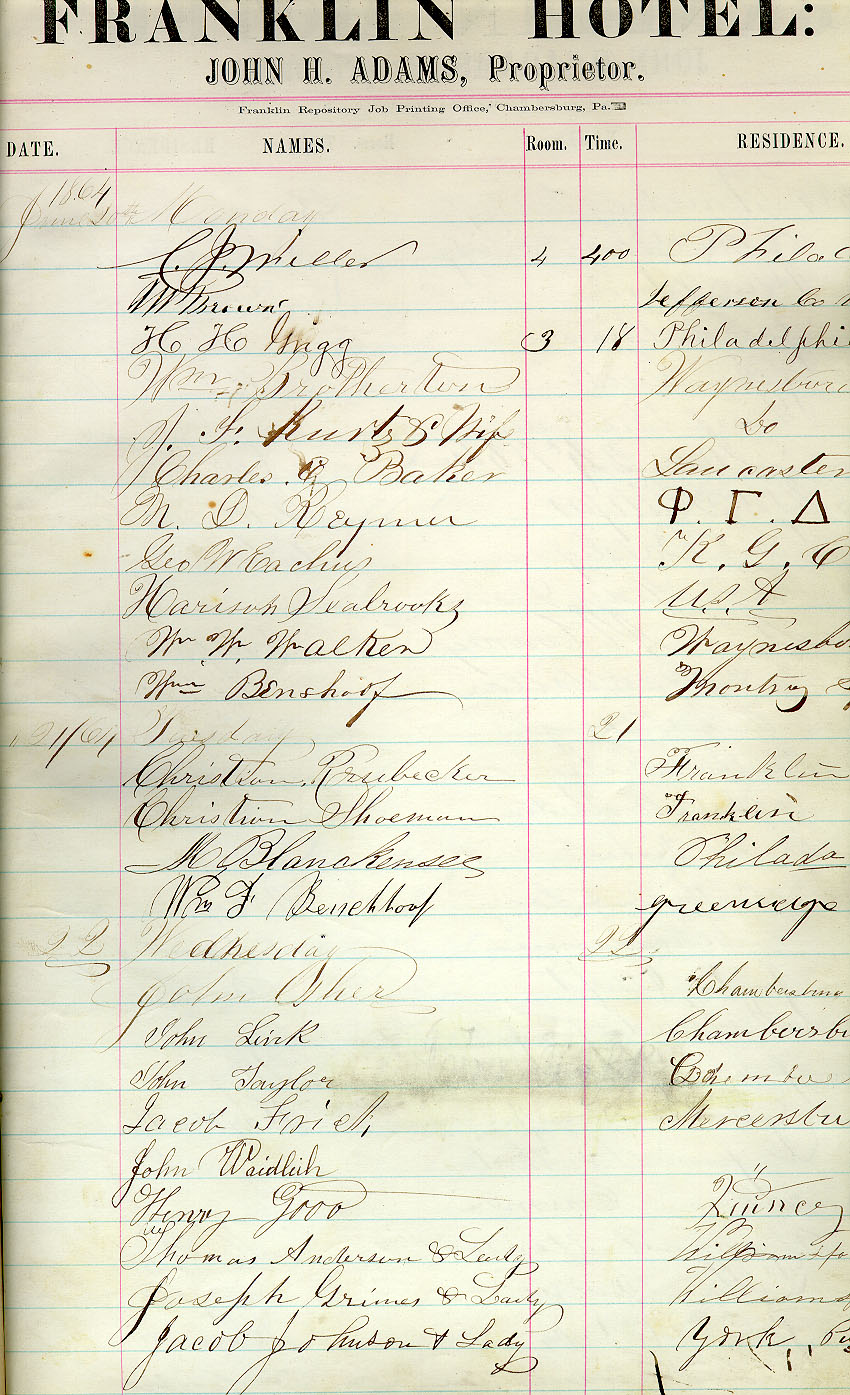 FRANKLIN HOTEL:
JOHN H. ADAMS, Proprietor.
Franklin Repository Job Printing Office, Chambersburg, Pa.
DATE. NAMES. Room. Time. RESIDENCE.
1864
June 20th Monday
C. J. Miller 4 400 Philad
W Brown Jefferson Co
H H Grigg 3 18 Philadelphi
Wm Brotherton Waynesboro
J. F. Kurtz & Wife Do
Charles Baker Lancaster
M. D. Reymer Φ. Γ. Δ
Geo W Eachus K. G. C
Harison Seabrooks U.S.A
Wm W. Walker Waynesbo
Wm Benshoof
21/64 Tuesday 21
Christian Franklin
Christian Shoeman Franklin
M Blanckensee Philada
Wm F Benchhoof
22 Wednesday 22
John Osher Chambersburg
John Link Chambersbu
John Taylor
Jacob Frick Mercersbu
John Waidlich "
Henry Good Quincey
Thomas Anderson & Lady
Joseph Grimes & Lady Williams
Jacob Johnson & Lady York